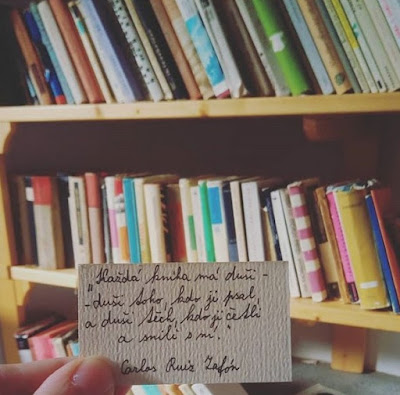 „Každá kniha má duši -
- duši toho, kdo ji psal,
a duši těch, kdo ji četli
a snili s ní.“
Carlos Ruiz Zafón